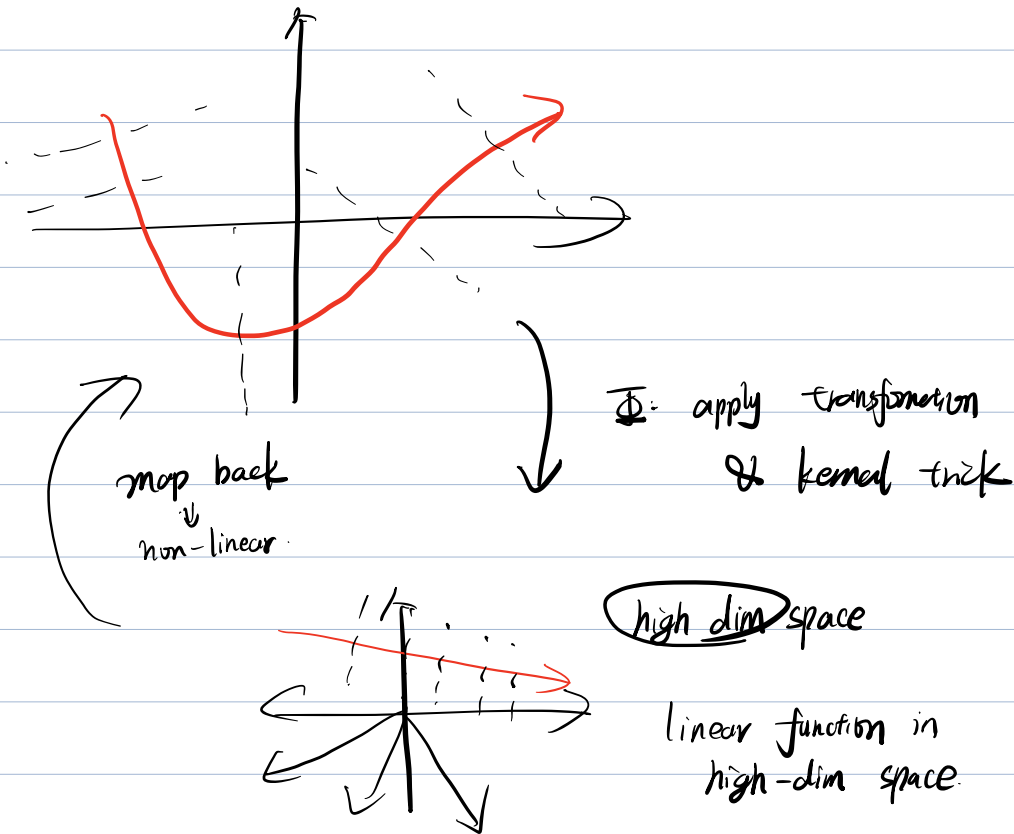 Φ: apply transfometion
& kernel trick
map back
↓
non-linear.
high dim space
linear function in
high-dim space.